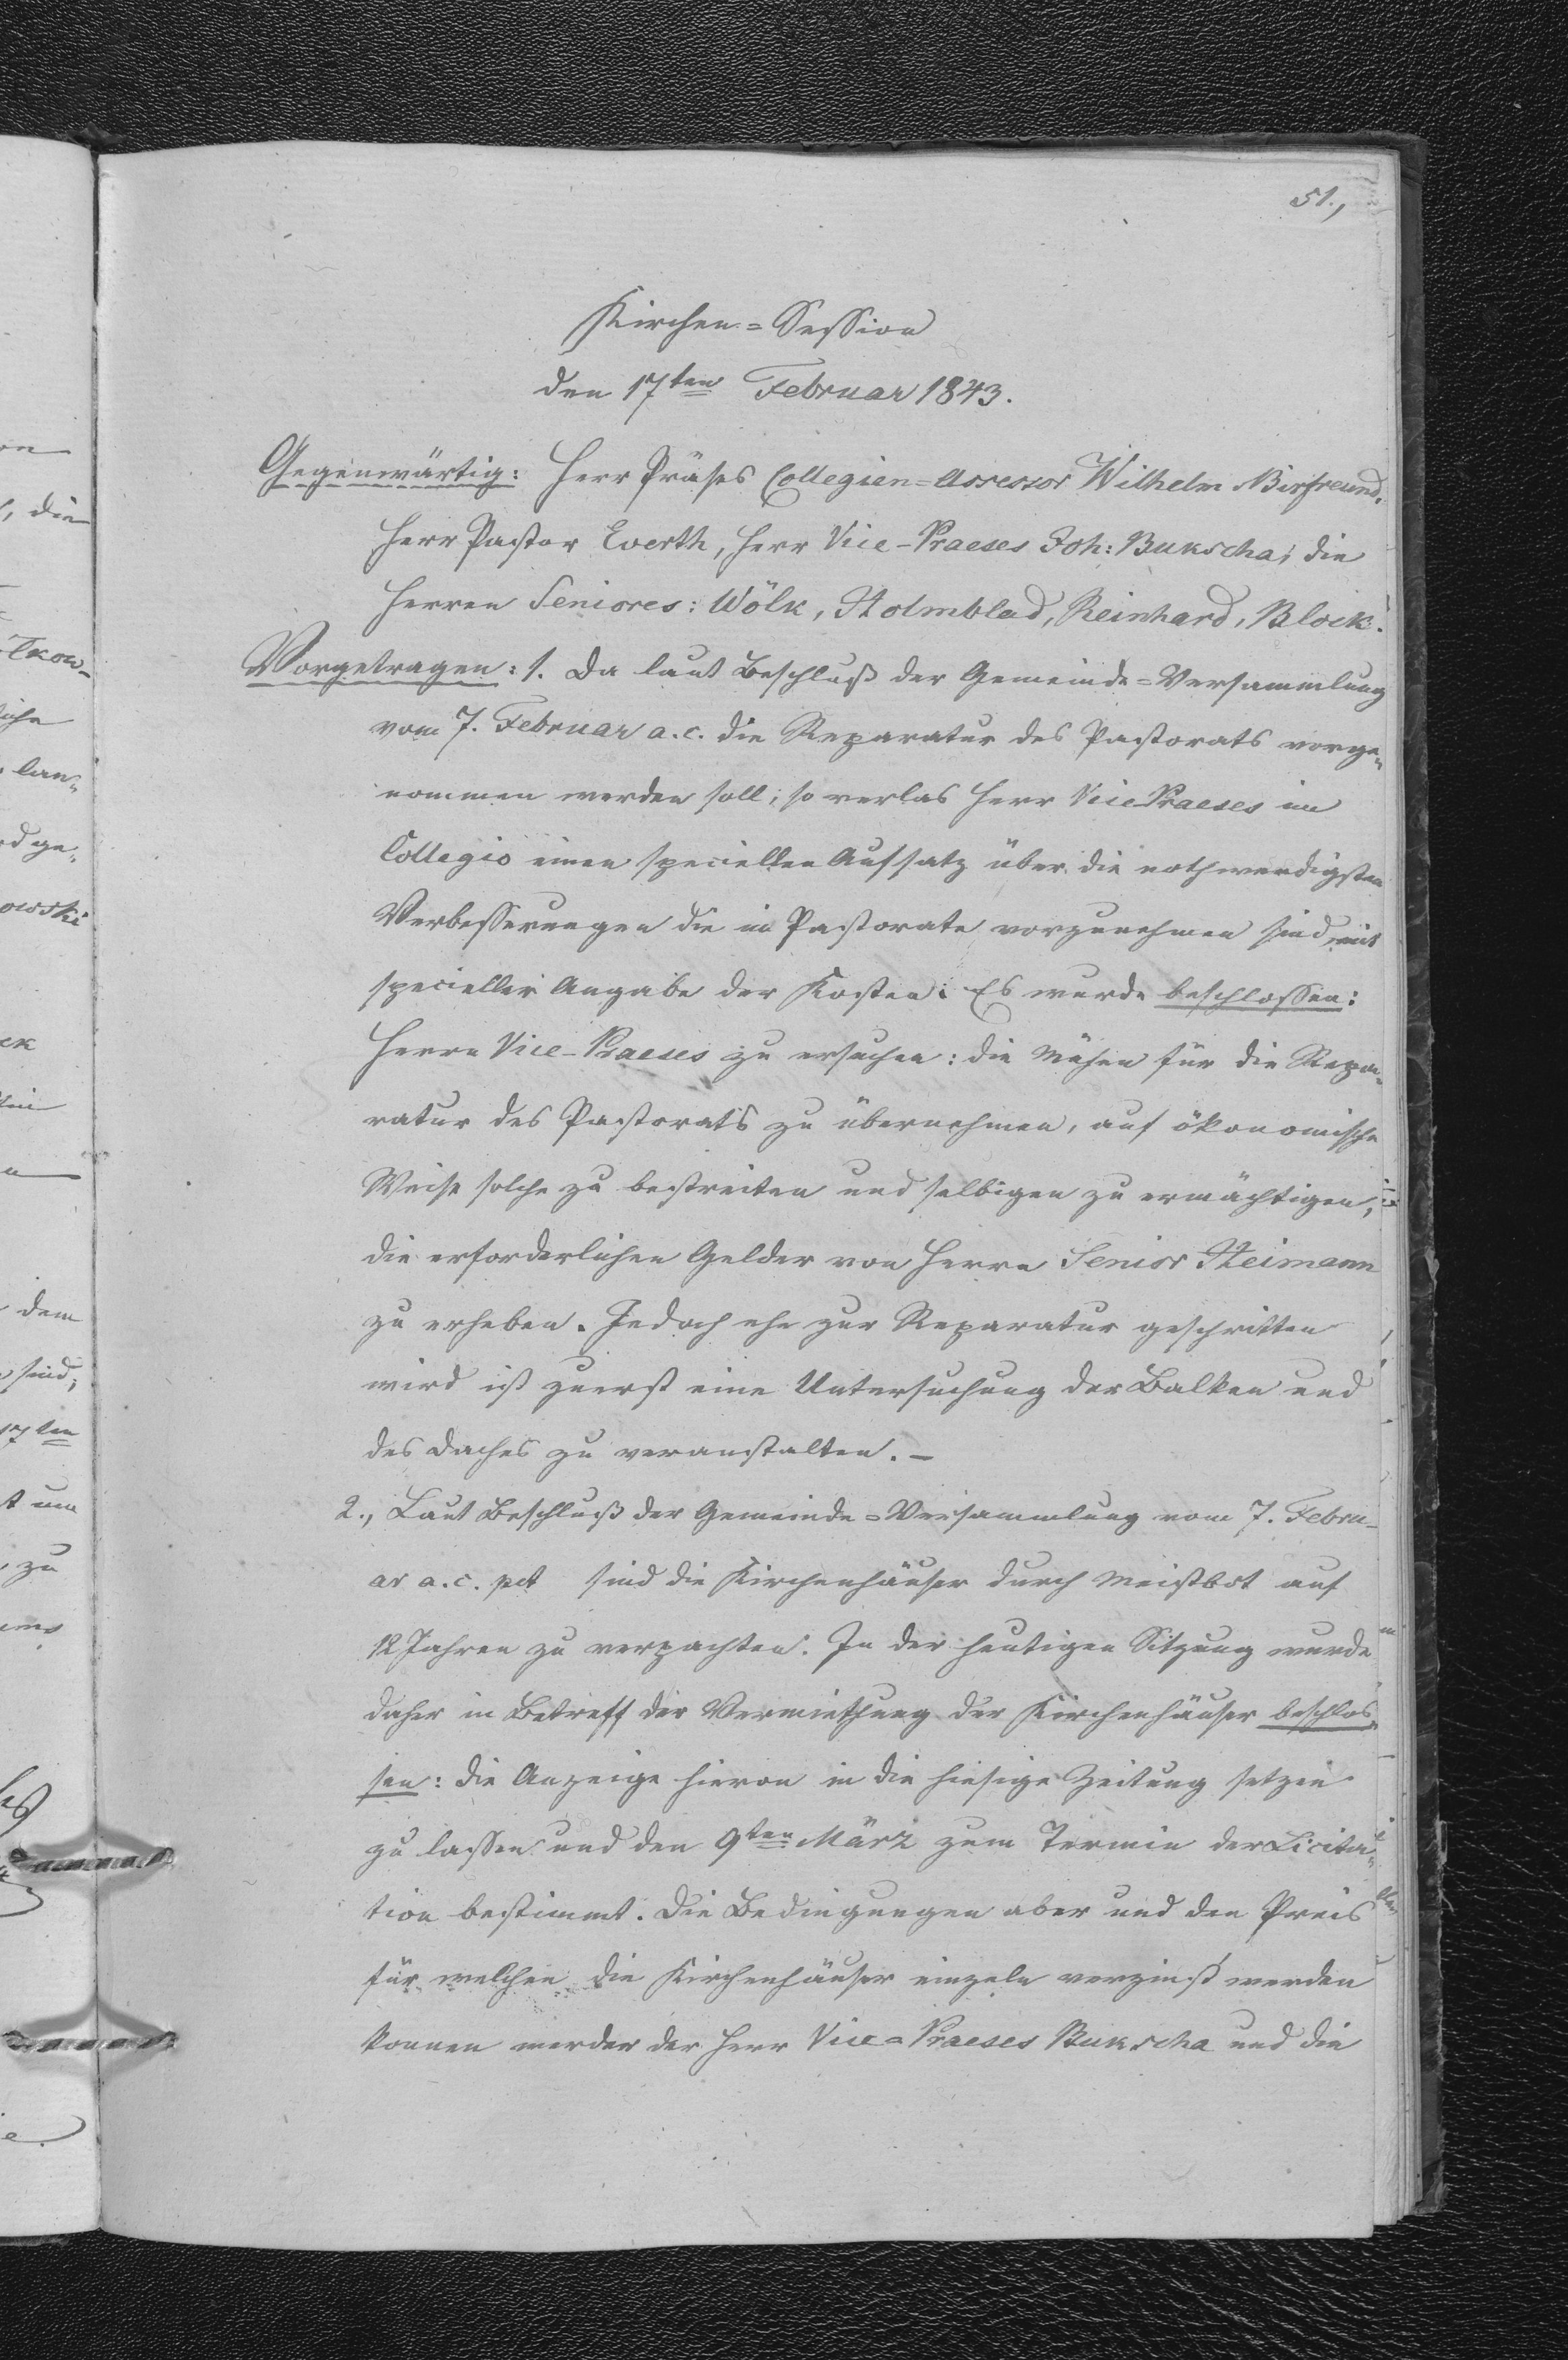 51.,
Kirchen=Session
den 17ten Februar 1843.
Gegenwärtig: Herr Präses Collegien=Assessor Wilhelm Birfreund,
Herr Pastor Everth, Herr Vice-Praeses Joh: Bukscha; die
Herren Seniores: Wölk, Holmblad, Reinhard, Block.
Vorgetragen: 1. Da laut Beschluß der Gemeinde=Versammlung
vom 7. Februar a. c. die Reparatur des Pastorats vorge=
nommen werden soll; so verlas Herr Vice Praeses im
Collegio einen speciellen Aufsatz über die nothwendigsten
Verbesserungen die im Pastorate vorzunehmen sind mit
specieller Angabe der Kosten. Es wurde beschlossen:
Herrn Vice-Praeses zu ersuchen: die Mühen für die Repa=
ratur des Pastorats zu übernehmen, auf ökonomische
Weise solche zu bestreiten und selbigen zu ermächtigen,
die erforderlichen Gelder von Herrn Senior Heimann
zu erheben. Jedoch ehe zur Reparatur geschritten
wird ist zuerst eine Untersuchung der Balken und
des Daches zu veranstalten. –
2., Laut Beschluß der Gemeinde=Versammlung vom 7. Febru-
ar a. c. pct sind die Kirchenhäuser durch Meistbot auf
12 Jahren zu verpachten. In der heutigen Sitzung wurde
daher in Betreff der Vermiethung der Kirchenhäuser beschlos=
sen: die Anzeige hievon in die hiesige Zeitung setzen
zu lassen und den 9ten März zum Termin der Licita=
tion bestimmt. Die Bedingungen aber und den Preis
für welchen die Kirchenhäuser einzeln verzinst werden
konnen werden der Herr Vice=Praeses Bukscha und die